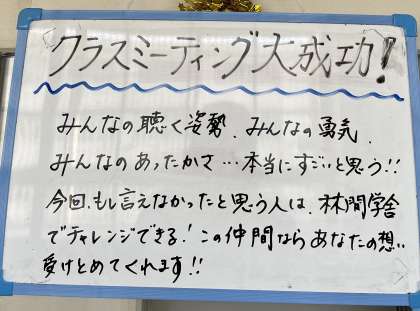 クラスミーティング大成功!
みんなの聴く姿勢、みんなの勇気、
みんなのあったかさ…本当にすごいと思う!!
今回、もし言えなかったと思う人は、林間学舎
でチャレンジできる!この仲間ならあなたの想い
受けとめてくれます!!